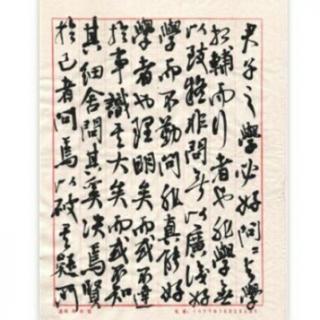 君子之學必好問〻与學
相輔而行者也非學無
以致疑非問無以廣識好
學而不勤問非真能好
學者也理明矣而或不達
於事識其大矣而或不知
其細舍問其奚決焉賢
於己者問焉以破其疑所